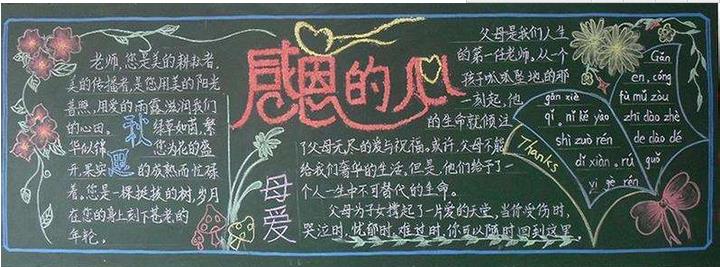 感恩的心
老师，您是美的耕耘者，
美的传播者，是您用美的阳光
普照，用爱的雨露滋润我们
的心田，绿草如茵，繁
华似锦 您为花的盛
开，果实的成熟而忙碌
着。您是一棵挺拔的树，岁月
在您的身上刻下苍老的
年轮。
秋
恩
母爱
父母是我们人生
的第一任老师，从一个
孩子呱呱落地的那
一刻起，他
的生命就倾注
了父母无尽的爱与祝福。或许，父母不能
给我们奢华的生活，但是，他们给予了一
个人一生中不可替代的生命。
父母为子女撑起了一片爱的天堂，当你受伤时，
哭泣时，忧郁时，难过时，你可以随时回到这里
Thanks
gǎn xiè
qǐ, nǐ kě yǎo
shì zuò rén
dǐ xiàn, rú guǒ
yí gè rén
Gǎn
en, cóng
fù mǔ zòu
zhī dào zhè
de dào dé